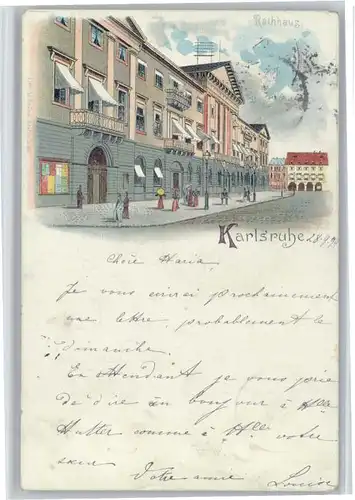 Rathhaus
Karlsruhe
Chère Maria,
Je vous écrirai prochainement
une lettre, probablement le
Dimanche.
En attendant je vous prie
de dire un bonjour à Mlle
Hutter comme à Mlle votre
sœur
Votre amie Louise